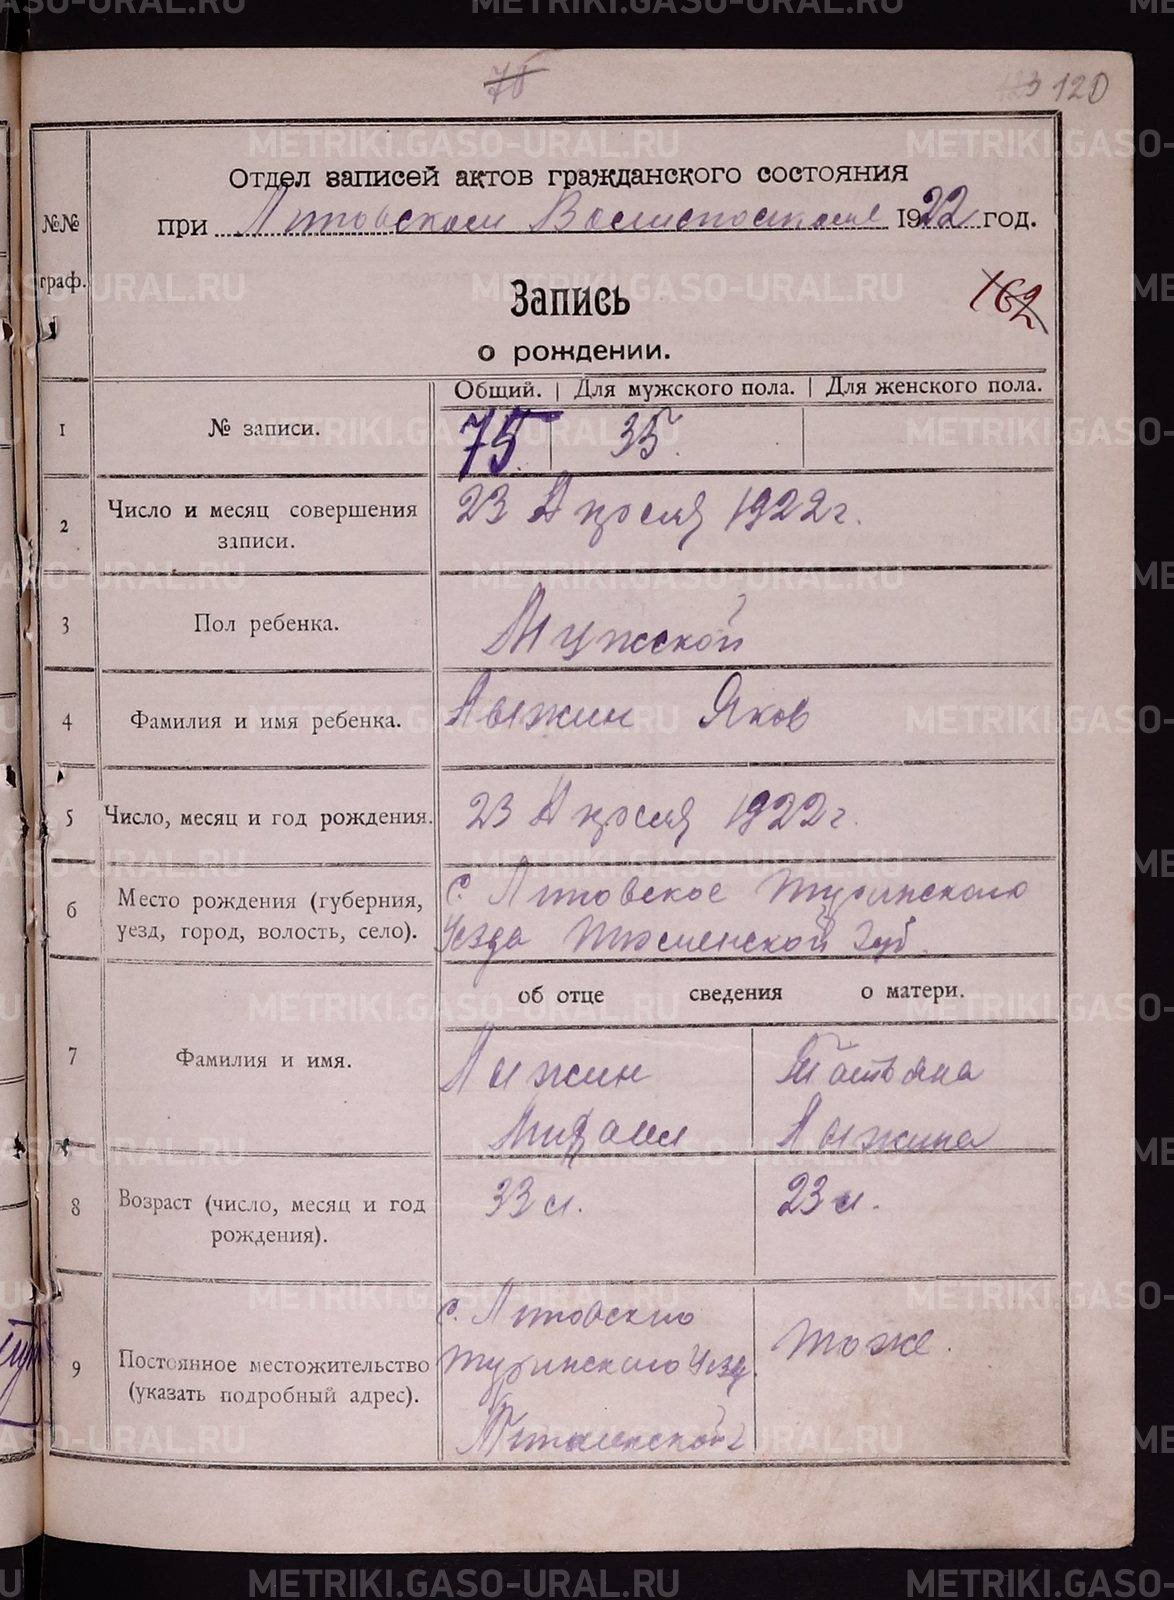 75
123 120
Отдел записей актов гражданского состояния
при Липовском Волисполкоме 1922 год.
№№
граф.
Запись
162
о рождении.
Общий. | Для мужского пола. | Для женского пола.
1 № записи. 75. 35.
2 Число и месяц совершения записи. 23 Апреля 1922 г.
3 Пол ребенка. Мужской
4 Фамилия и имя ребенка. Лыжин Яков
5 Число, месяц и год рождения. 23 Апреля 1922 г.
6 Место рождения (губерния, с. Липовское Туринского
уезд, город, волость, село). Уезда Тюменской Губ.
об отце сведения о матери.
7 Фамилия и имя. Лыжин Татьяна
Михаил Лыжина
8 Возраст (число, месяц и год рождения). 33 л. 23 л.
с. Липовского
9 Постоянное местожительство Туринского Уезд. Тоже.
(указать подробный адрес).
Тюменской г
METRIKI.GASO-URAL.RU